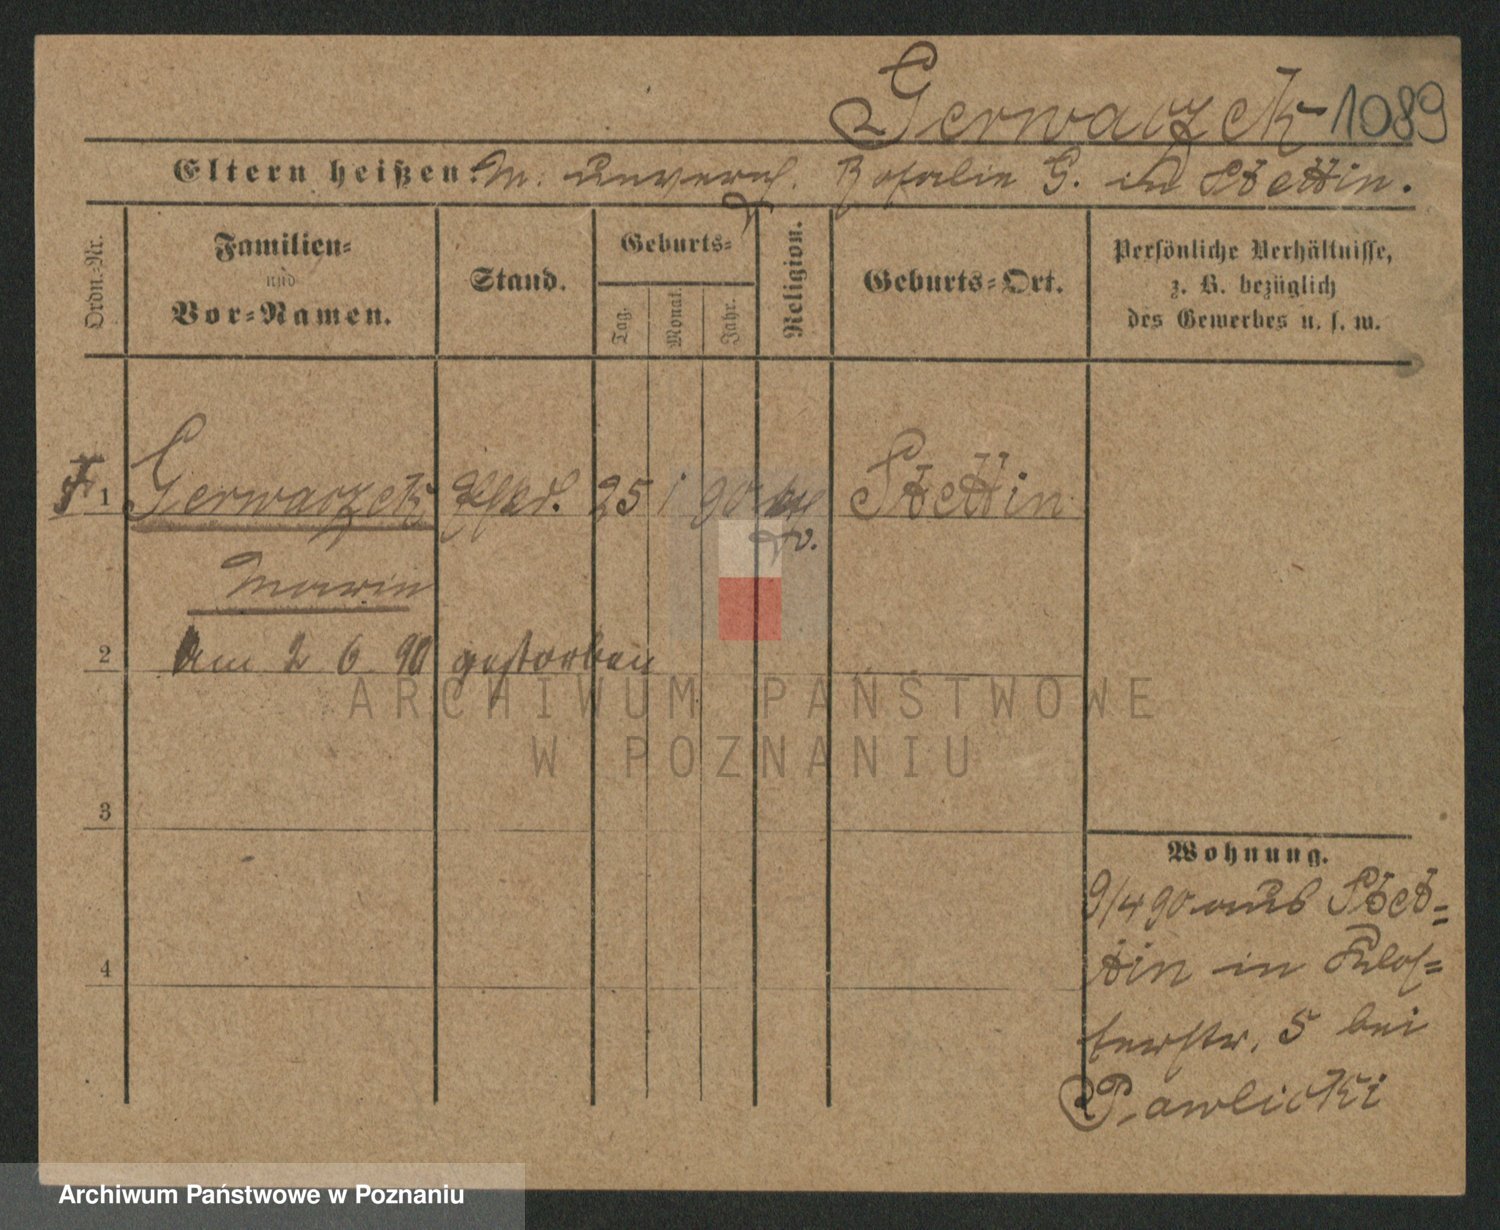 Gerwaczek 1089
Eltern heißen: M. unverh. Rosalie G. in Stettin.
Ordn.-Nr.
Familien-
und
Vor-Namen.
Stand.
Geburts-
Tag.
Monat.
Jahr.
Religion.
Geburts-Ort.
Persönliche Verhältnisse,
z. B. bezüglich
des Gewerbes u. s. w.
1 Gerwaczek 25 1 90 Stettin
Marie
2 Am 2 6 90 gestorben
3
4
Wohnung.
9/4 90 aus Stet=
tin in Klos=
terstr. 5 bei
Pawlicki
ARCHIWUM PAŃSTWOWE
W POZNANIU
Archiwum Państwowe w Poznaniu